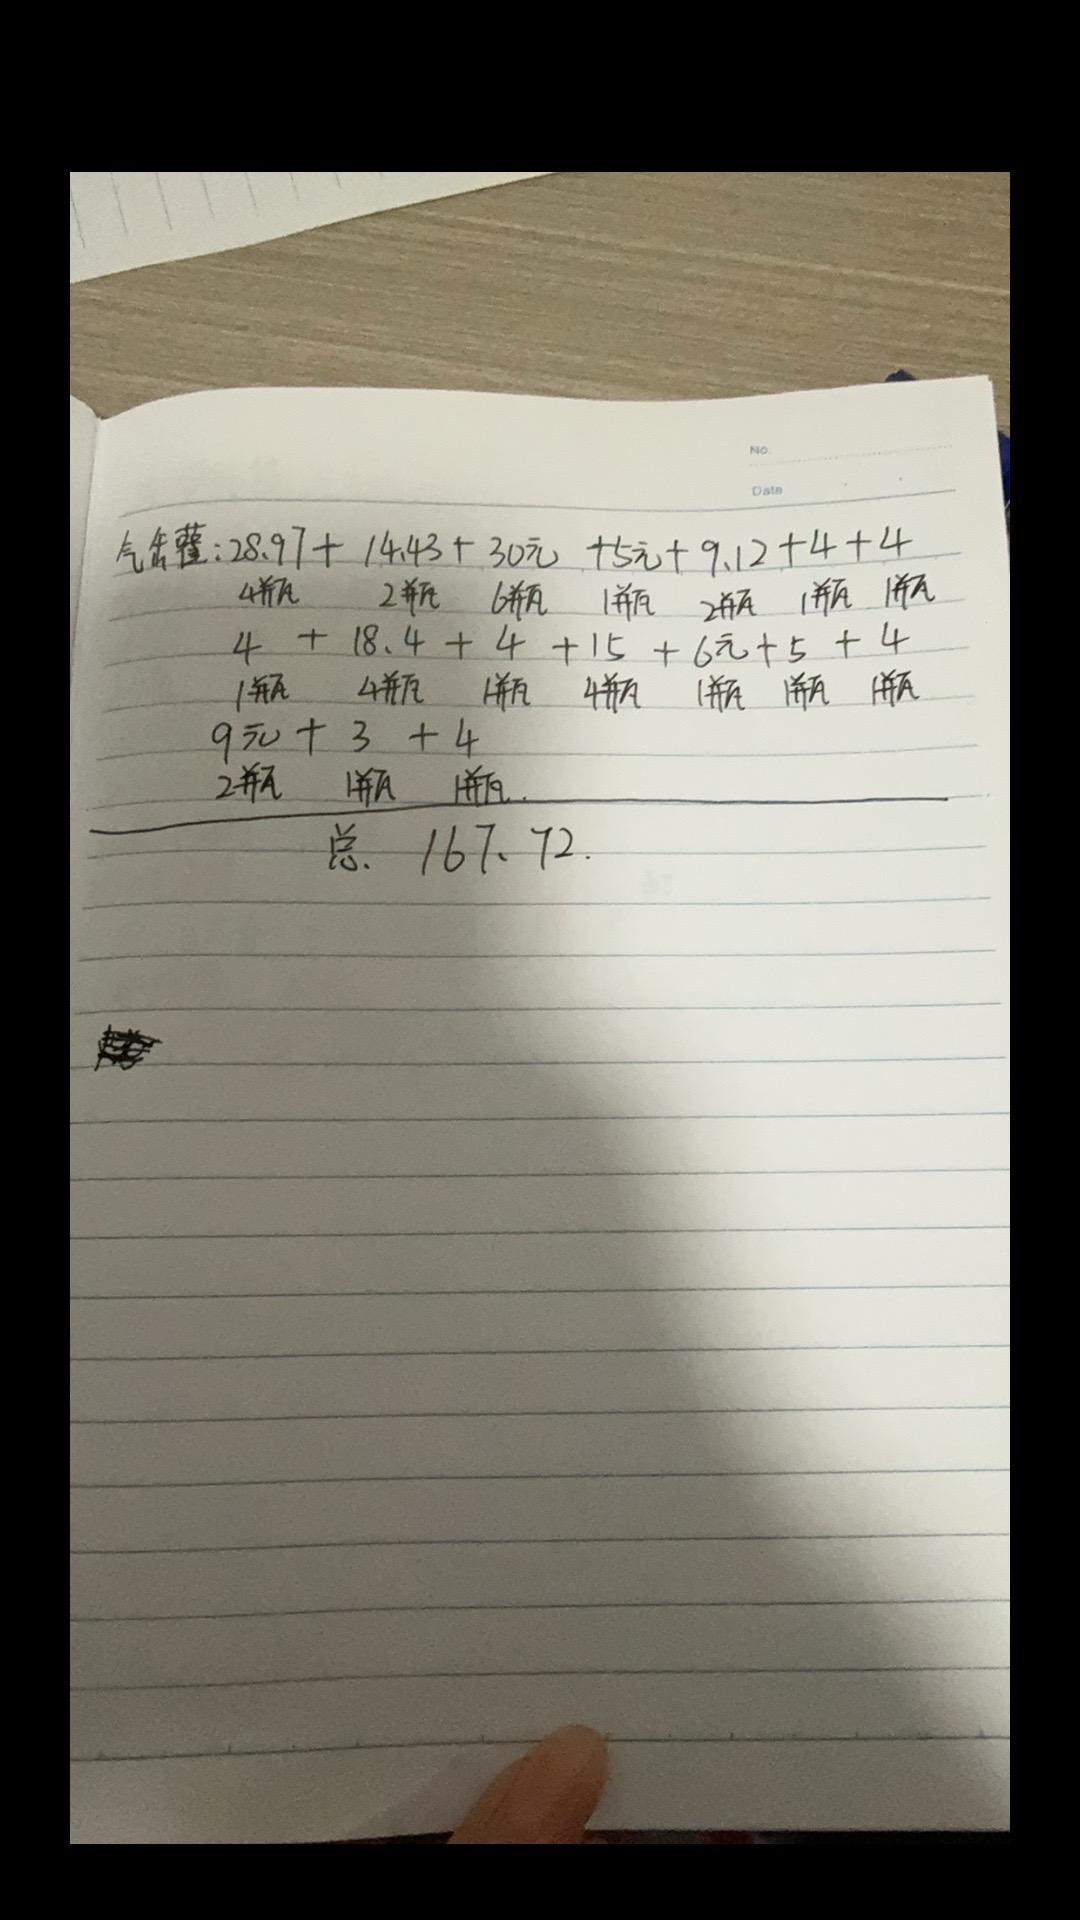 No.
Date
气雾罐:28.97+ 14.43+ 30元 +5元+ 9.12+4+4
4瓶 2瓶 6瓶 1瓶 2瓶 1瓶 1瓶
4 + 18.4 + 4 +15 + 6元+5 + 4
1瓶 4瓶 1瓶 4瓶 1瓶 1瓶 1瓶
9元 + 3 + 4
2瓶 1瓶 1瓶.
总. 167.72.